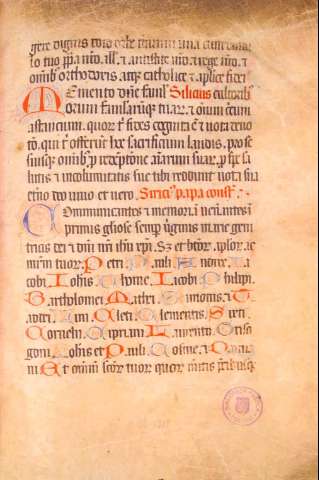 gere digneris toto orbe terrarum una cum famu
lo tuo papa nro. ill. & antistite nro. & rege nro. &
omnibus orthodoxis atque catholice & aplice fidei
Memento dne famulo Silicius cultoribus
rum famularumque tuarum & omnium circum
astancium. quorum tibi fides cognita est & nota devo
tio. qui tibi offerunt hoc sacrificium laudis. pro se
suisque omnibus pro redemptione animarum suarum. pro spe sa
lutis & incolumitatis sue tibi reddunt vota sua
eterno deo vivo et vero. Siricius papa const.
Communicantes & memoriam venerantes i
primis gliose semper virginis marie geni
tricis dei & dni nri ihu xpi. Sz et beatorum aplorum ac
mrm tuorum. Petri. Pauli. Andree. Ia
cobi. Iohis. Thome. Iacobi. Philipi.
Bartholomei. Mathei. Simonis. & T
adei. Lini. Cleti. Clementis. Sixti.
Cornelii. Cipriani. Laurentii. Grisο
goni. Iohis et Pauli. Cosme. & Damia
ni. Et omnium scorum tuorum quorum meritis precibusque